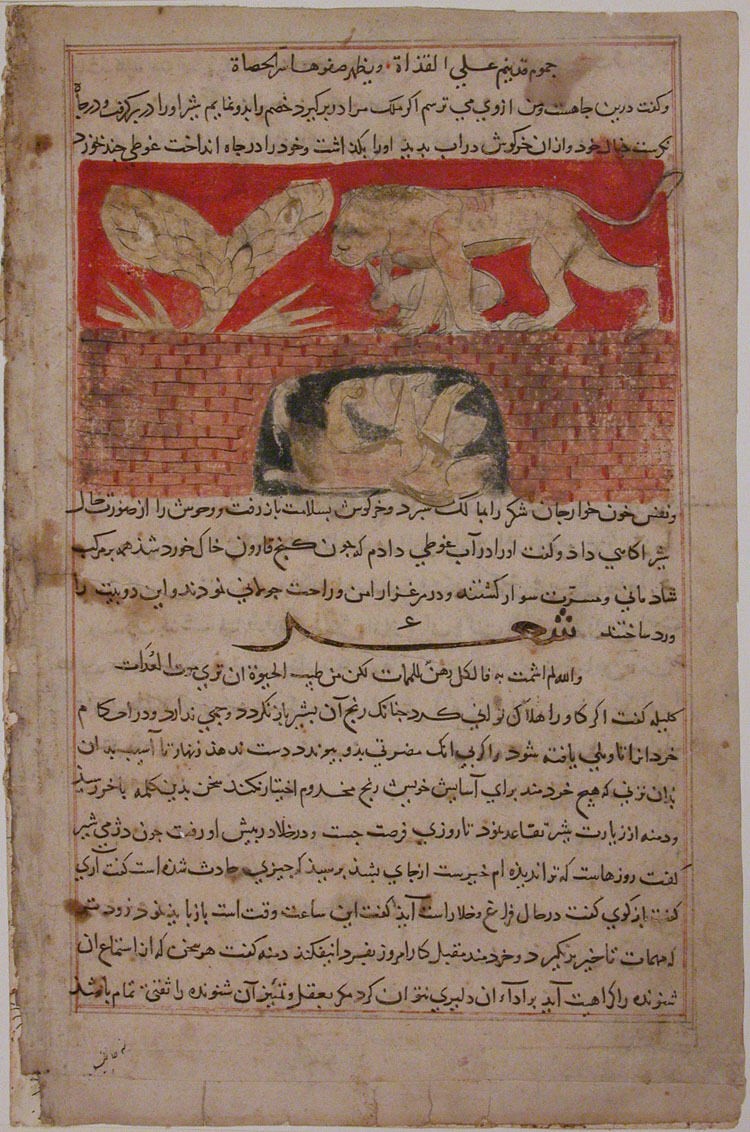 جموم قد ينم علي القذاة ويظهر صفوها سر الحصاة
وكفت درين جاهست ومن ازوي مي ترسم اكر ملك مرا در بر كيرد خصم را بدو نمايم شير اورا در بر كرفت و در جاه
نكرست خيال خود و ازان خركوش در اب بديد اورا بكذاشت وخود را در جاه انداخت غوطي جند خورد
ونفس خون خوار جان شكر را بمالك سپرد و خركوش بسلامت باز رفت و وحوش را از صورت حال
شير اكاهي داد و كفت اورا در آب غوطي دادم كه جون كنج قارون خاك خورد شد همه بر مركب
شادماني و مسرت سوار كشتند و در مرغزار امن و راحت جولاني نمودند و اين دو بيت را
ورد ساختند شعر
والله لم اشمت به فالكل رهن للممات لكن من طيب الحيوة ان تري موت العداة
كليله كفت اكر كاو را هلاك تواني كرد جنانك رنج آن بشير باز نكردد وجهي ندارد و در احكام
خرد انرا تاويلي يافته شود و اكر بي انك مضرتي بدو پيوندد دست ندهد زنهار تا آسيب بدان
نزني كه هيچ خردمند براي آسايش خويش رنج مخدوم اختيار نكند سخن بدين كلمه باخر رسيد
ودمنه از زيارت شير تقاعد نمود تا روزي فرصت جست و در خلا در پيش او رفت جون دژمي شير
كفت روزهاست كه ترا نديده ام خير هست از جاي بشد پرسيد كه چيزي حادث شده است كفت آري
كفت باز كوي كفت در حال فراغ وخلا راست آيد كفت اين ساعت وقت است باز بايد نمود زودتر
كه مهمات تاخير بر نكيرد و خردمند مقبل كار امروز بفردا نيفكند دمنه كفت هر سخن كه از استماع ان
شنونده را كراهيت آيد بر اداء ان دليري نتوان كرد مكر بعقل وتميز آن شنونده را ثقتي تمام باشد